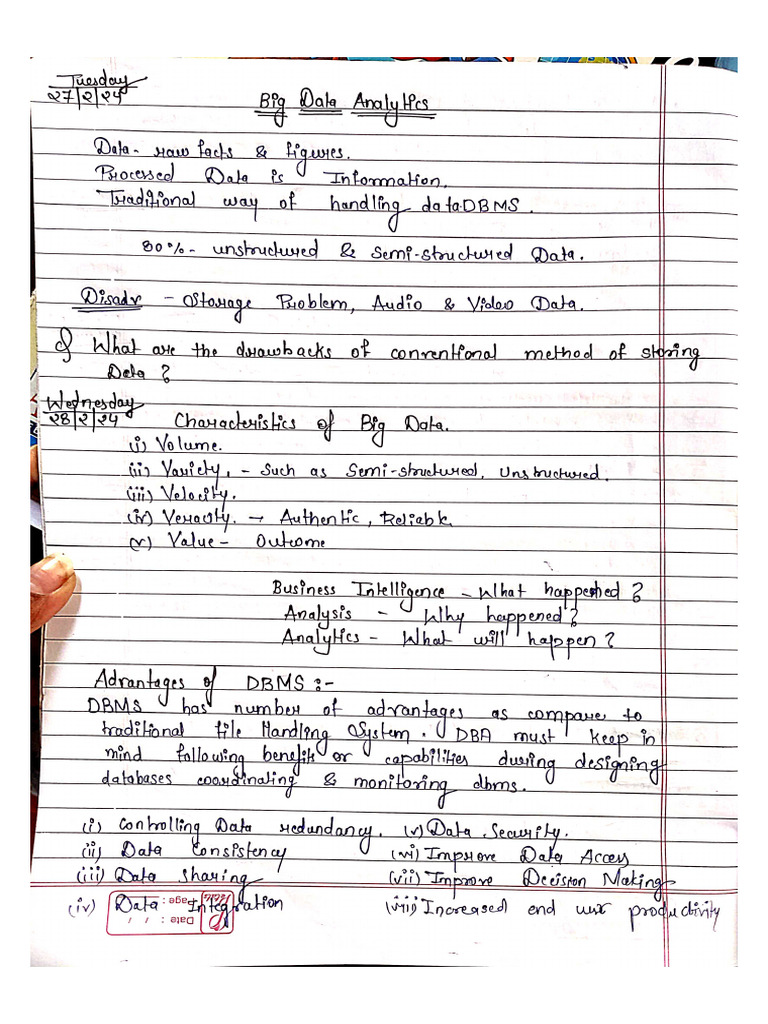 Tuesday
२७/२/२४
Big Data Analytics
Data - raw facts & figures.
Processed Data is Information.
Traditional way of handling data DBMS.
80% - unstructured & semi-structured Data.
Disadv - Storage Problem, Audio & Video Data.
Q What are the drawbacks of conventional method of storing
Data ?
Wednesday
२८/२/२४
Characteristics of Big Data.
(i) Volume.
(ii) Variety, - Such as Semi-structured, Unstructured.
(iii) Velocity.
(iv) Veracity. → Authentic, Reliable.
(v) Value - Outcome
Business Intelligence - What happened ?
Analysis - Why happened ?
Analytics - What will happen ?
Advantages of DBMS :-
DBMS has number of advantages as compare to
traditional file Handling System. DBA must keep in
mind following benefits or capabilities during designing
databases coordinating & monitoring dbms.
(i) Controlling Data redundancy. (v) Data Security.
(ii) Data Consistency (vi) Improve Data Access
(iii) Data sharing (vii) Improve Decision Making
(iv) Data Integration (viii) Increased end user productivity
Page :
Date : / /